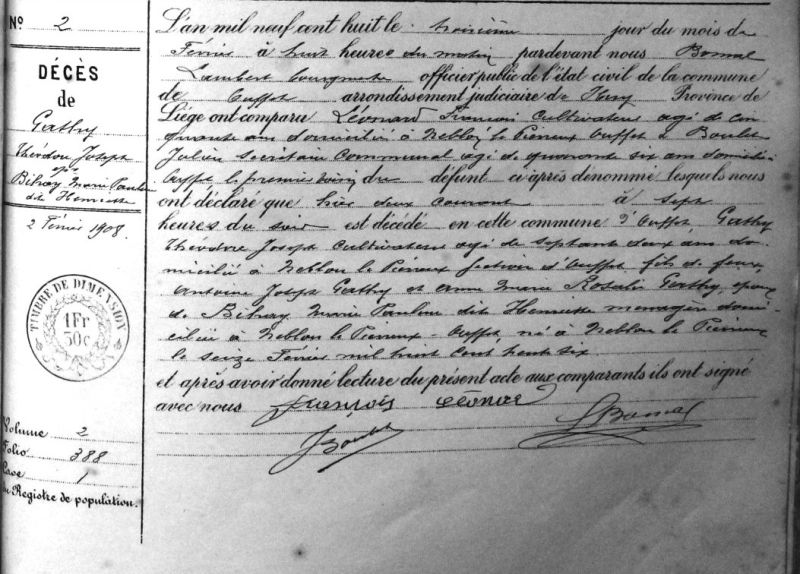 N° 2
DÉCÈS
de
Gathy
Théodore Joseph
épx
Bihay Marie Pauline
dit Henriette
2 Février 1908.
TIMBRE DE DIMENSION
1Fr
30c
Volume 2
Folio 388
Case 1
du Registre de population.
L'an mil neuf cent huit le troisième jour du mois de
Février à huit heures du matin pardevant nous Bomal
Lambert bourgmestre officier public de l'état civil de la commune
de Ouffet arrondissement judiciaire de Huy Province de
Liége ont comparu Léonard François Cultivateur agé de cin
quante ans domicilié à Neblon le Piereux Ouffet & Boulet
Julien Secrétaire Communal agé de quarante six ans domicilié
Ouffet le premier voisin du défunt ci après dénommé lesquels nous
ont déclaré que hier deux courant à sept
heures du soir est décédé en cette commune d'Ouffet, Gathy
Théodore Joseph Cultivateur agé de septante deux ans do-
micilié à Neblon le Piereux section d'Ouffet fils de feux
Antoine Joseph Gathy et Anne Marie Rosalie Gathy, époux
de Bihay Marie Pauline dit Henriette menagère domi-
ciliée à Neblon le Piereux - Ouffet né à Neblon le Piereux
le seize Février mil huit cent trente six.
et après avoir donné lecture du présent acte aux comparants ils ont signé
avec nous François Léonard
J Boulet
L Bomal